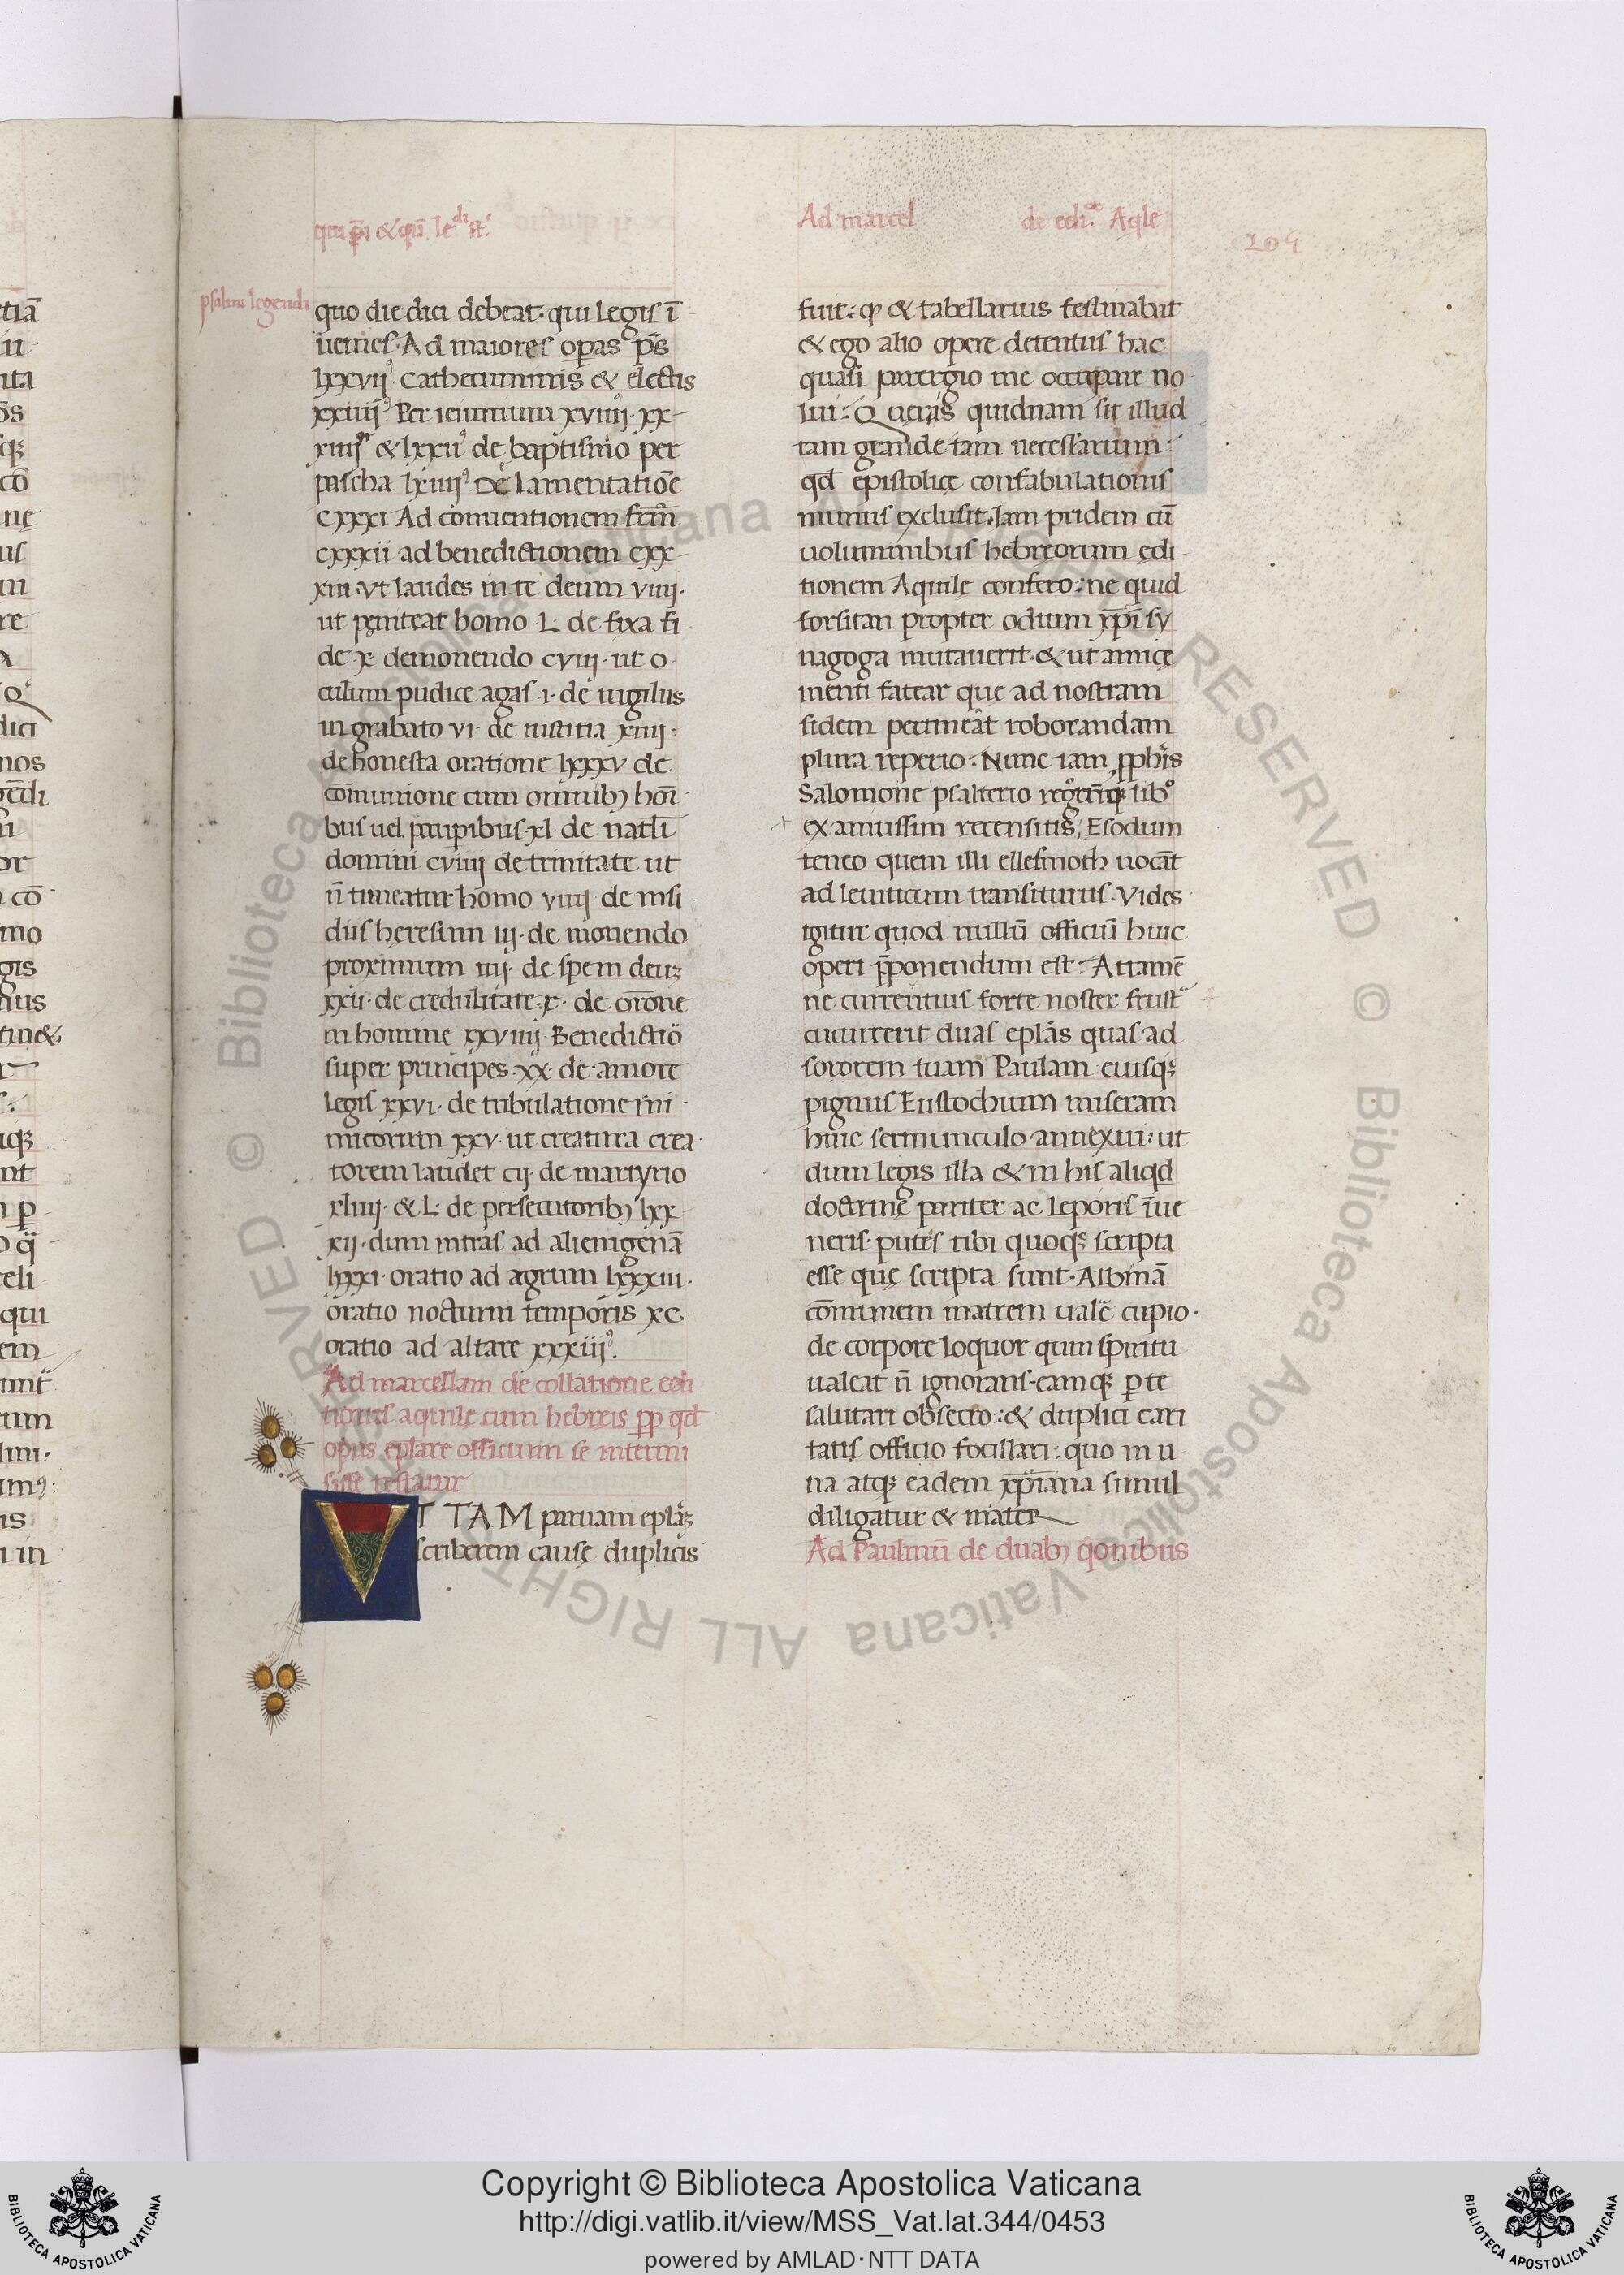 Ad marcel de edi. Aqle
psalmi legendi
quo die dici debeat· qui legis ī
uenies· Ad maiores opas ps̄
lxxvii⁹ cathecuminis & electis
xxiiij⁹ Per ieiunium xviiij· xx
xiiij & lxxii⁹ de baptismo per
pascha lxiiij⁹ De lamentatiōe
cxxxi Ad conuentionem frm̄
cxxxii ad benedictionem cxx
xiii· Vt laudes in te deum viiij·
ut peniteat homo L· de fixa fi
de· x· demonendo cviii· ut o
culum pudice agas ·i· de uigiliis
in grabato vi· de iustitia xiiij·
de honesta oratione lxxxv de
cōmunione cum omnib; hoī
bus uel paupibus· xl de natli
domini cviiij de trinitate ut
n̄ timeatur homo viiij de insi
diis heresium iij· de monendo
proximum iiij· de spem deuz
xxii· de credulitate· x· de orōne
in homine xxviiij· Benedictiō
super principes· xx· de amore
legis xxvi· de tribulatione ini
micorum xxv· ut creatura crea·
torem laudet cij· de martyrio
xliiij· & L· de persecutorib; lxx
xij· dum intras ad alienigenā
lxxxi· oratio ad agrum lxxxiii·
oratio nocturni temporis xc
oratio ad altare xxxiii⁹.
Ad marcellam de collatione edi
tionis aquile cum hebreis pp qd
opus eplare officium se intermi
sisse testatur
VT TAM paruam eplaz
scriberem cause duplicis
fuit: q & tabellarius festinabat
& ego alio opere detentus hac
quasi parergio me occupare no
lui: Queris quidnam sit illud
tam grande tam necessarium:
qd epistolice confabulationis
munus exclusit. Iam pridem cū
uoluminibus hebreorum edi
tionem Aquile confero: ne quid
forsitan propter odium xp̄i sy
nagoga mutauerit· & ut amice
menti fatear que ad nostram
fidem pertineāt roborandam
plura reperio: Nunc iam pphis
Salomone psalterio regnr̄q lib⁹
examussim recensitis, Esodum
teneo quem illi ellesmoth uocāt
ad leuiticum transiturus· Vides
igitur quod nullū officiū huic
operi p̄ponendum est: Attamē
ne currentius forte noster frust
cucurrerit duas eplās quas ad
sororem tuam Paulam eiusq;
pignus Eustochium miseram
huic sermunculo annexui: ut
dum legis illa & in his aliqd
doctrine pariter ac leporis īue
neris· putes tibi quoq; scripta
esse que scripta sunt· Albinā
cōmunem matrem ualē cupio·
de corpore loquor qum spiritu
ualeat n̄ ignorans· eamq; p te
salutari obsecro: & duplici cari
tatis officio focillari: quo in u
na atq; eadem xp̄iana simul
diligatur & mater
Ad Paulinū de duab; qōnibus
Copyright © Biblioteca Apostolica Vaticana
http://digi.vatlib.it/view/MSS_Vat.lat.344/0453
powered by AMLAD·NTT DATA